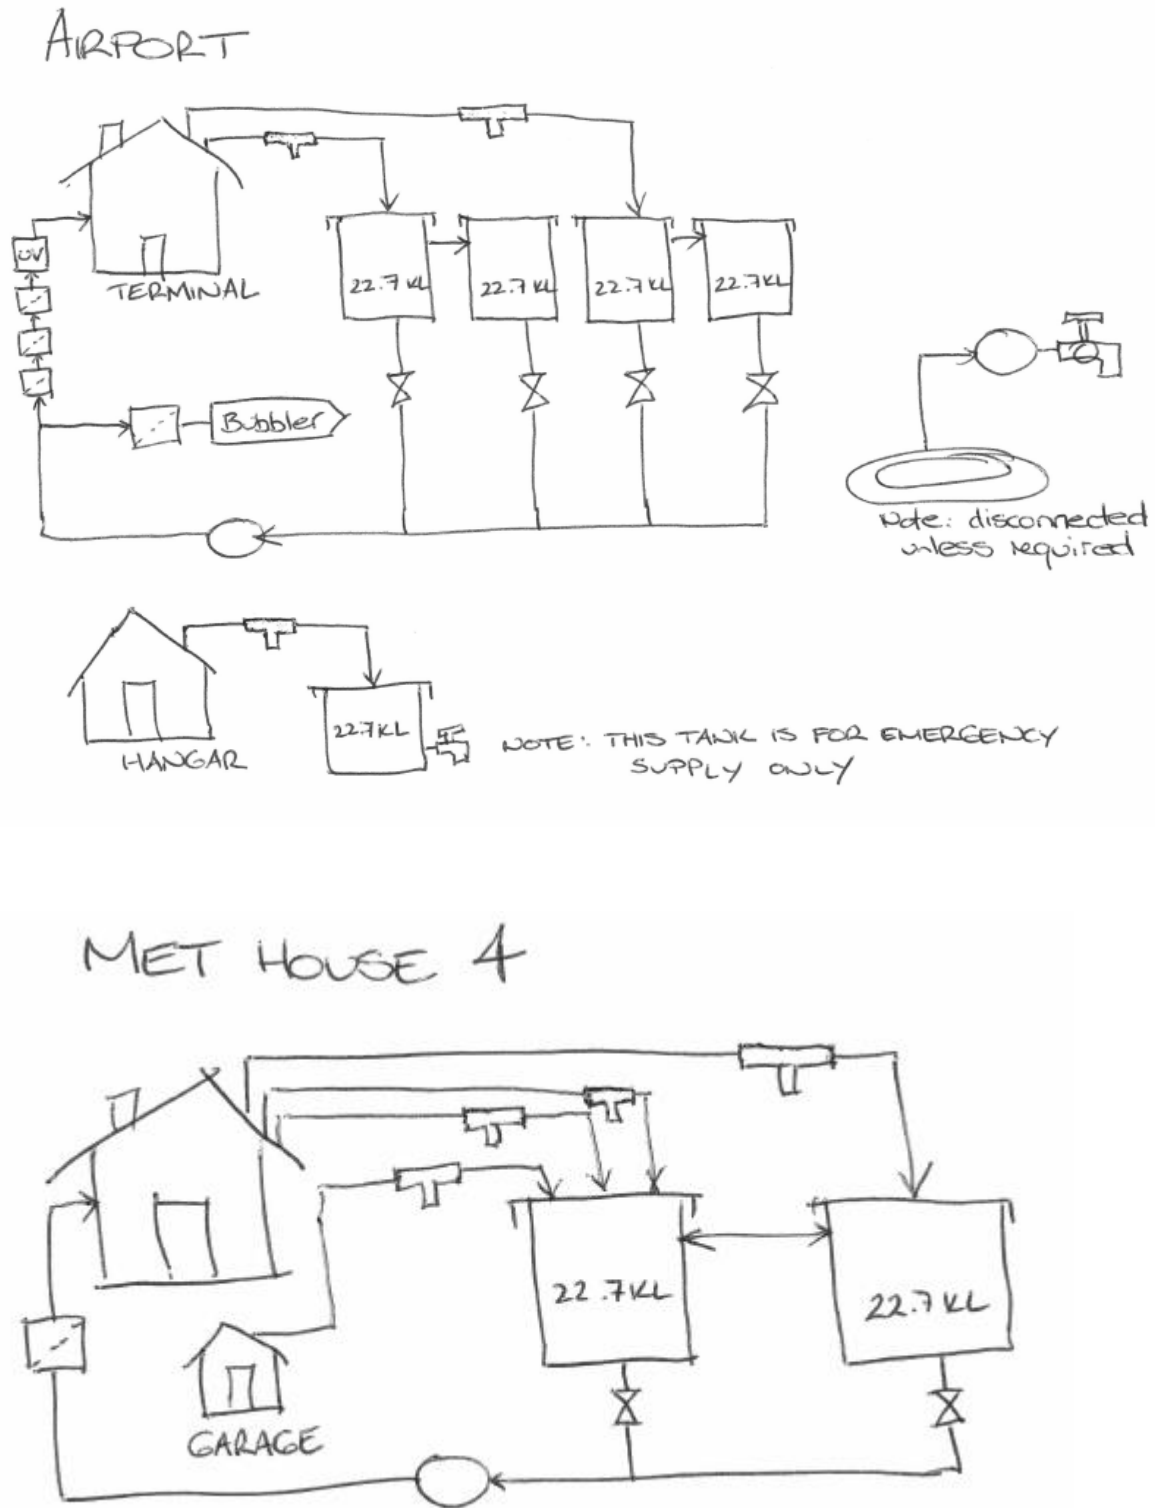 AIRPORT
UV
TERMINAL
22.7 KL
22.7 KL
22.7 KL
22.7 KL
Bubbler
Note: disconnected
unless required
HANGAR
22.7KL
NOTE: THIS TANK IS FOR EMERGENCY
SUPPLY ONLY
MET HOUSE 4
22.7KL
22.7KL
GARAGE